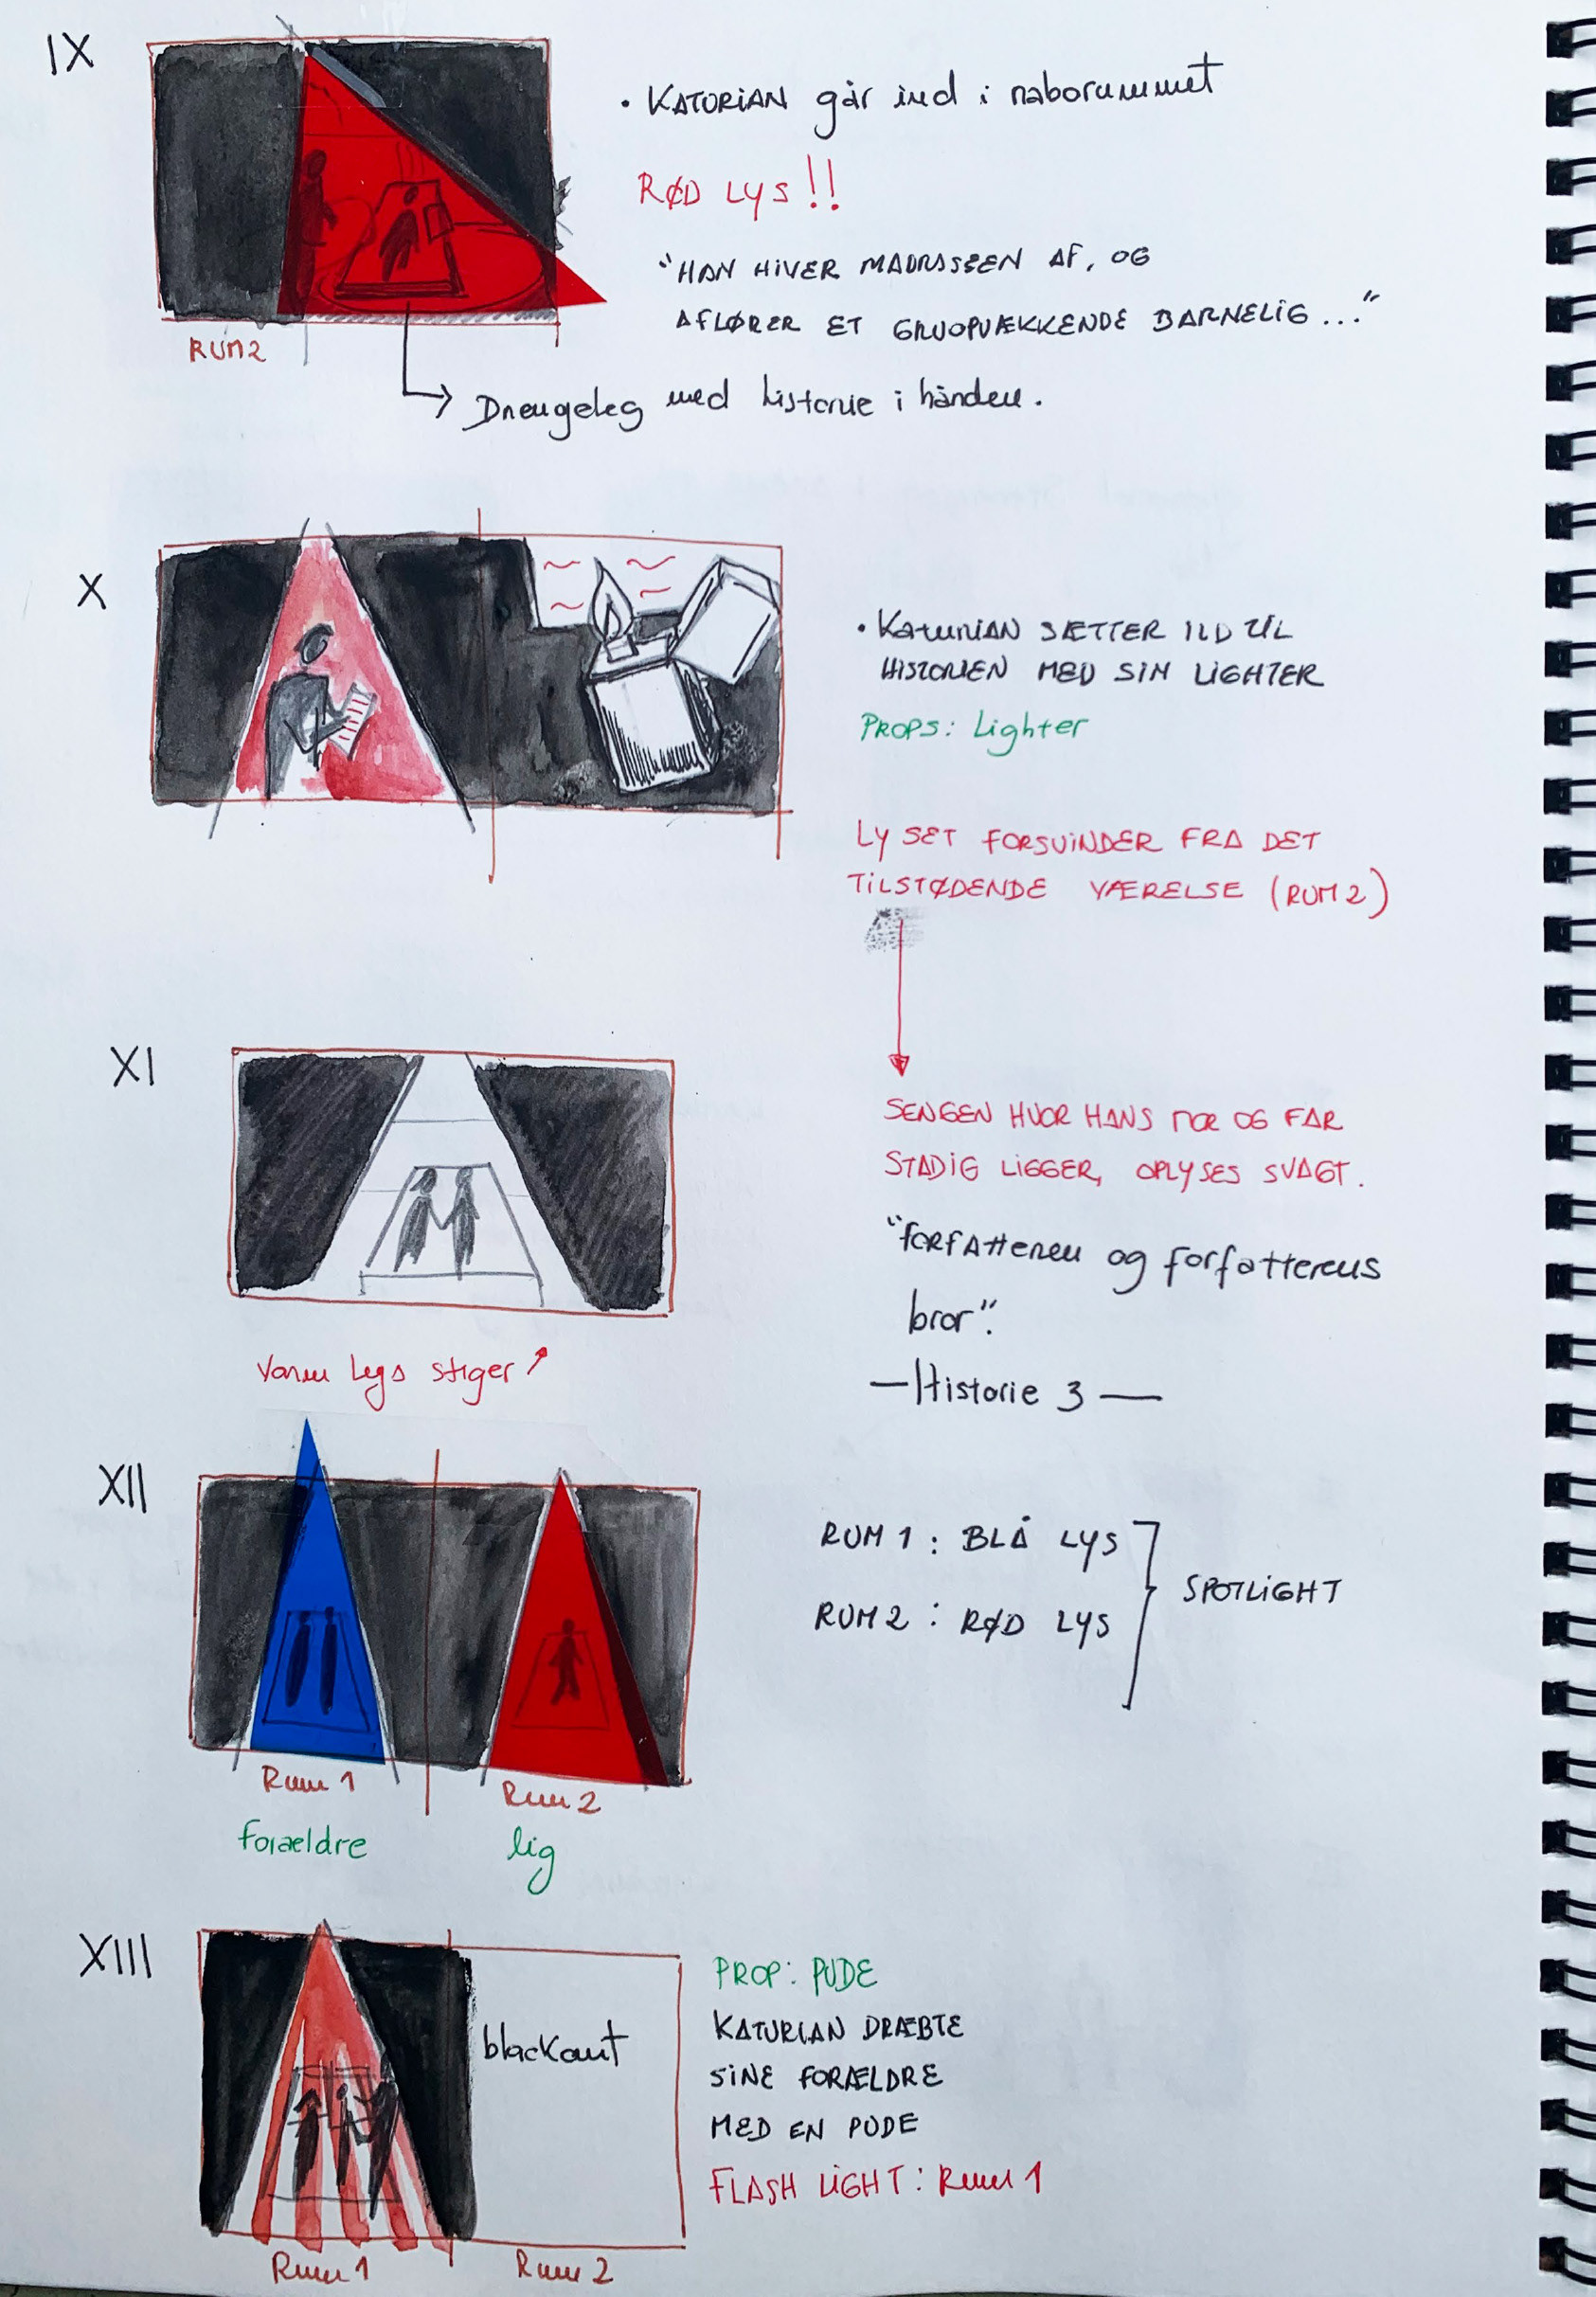 IX
• KATURIAN går ind i naborummet
RØD LYS!!
"HAN HIVER MADRASSEN AF, OG
AFLØRER ET GRUOPVÆKKENDE BARNELIG..."
RUM2
Drengeleg med historie i hånden.
X
• KATURIAN SÆTTER ILD TIL
HISTORIEN MED SIN LIGHTER
PROPS: Lighter
LYSET FORSVINDER FRA DET
TILSTØDENDE VÆRELSE (RUM2)
XI
SENGEN HVOR HANS MOR OG FAR
STADIG LIGGER, OPLYSES SVAGT.
"forfatteren og forfatterens
bror".
—Historie 3—
Varm lys stiger
XII
RUM 1: BLÅ LYS
RUM 2: RØD LYS
SPOTLIGHT
Rum 1
Rum 2
forældre
lig
XIII
blackout
PROP: PUDE
KATURIAN DRÆBTE
SINE FORÆLDRE
MED EN PUDE
FLASH LIGHT: Rum 1
Rum 1
Rum 2